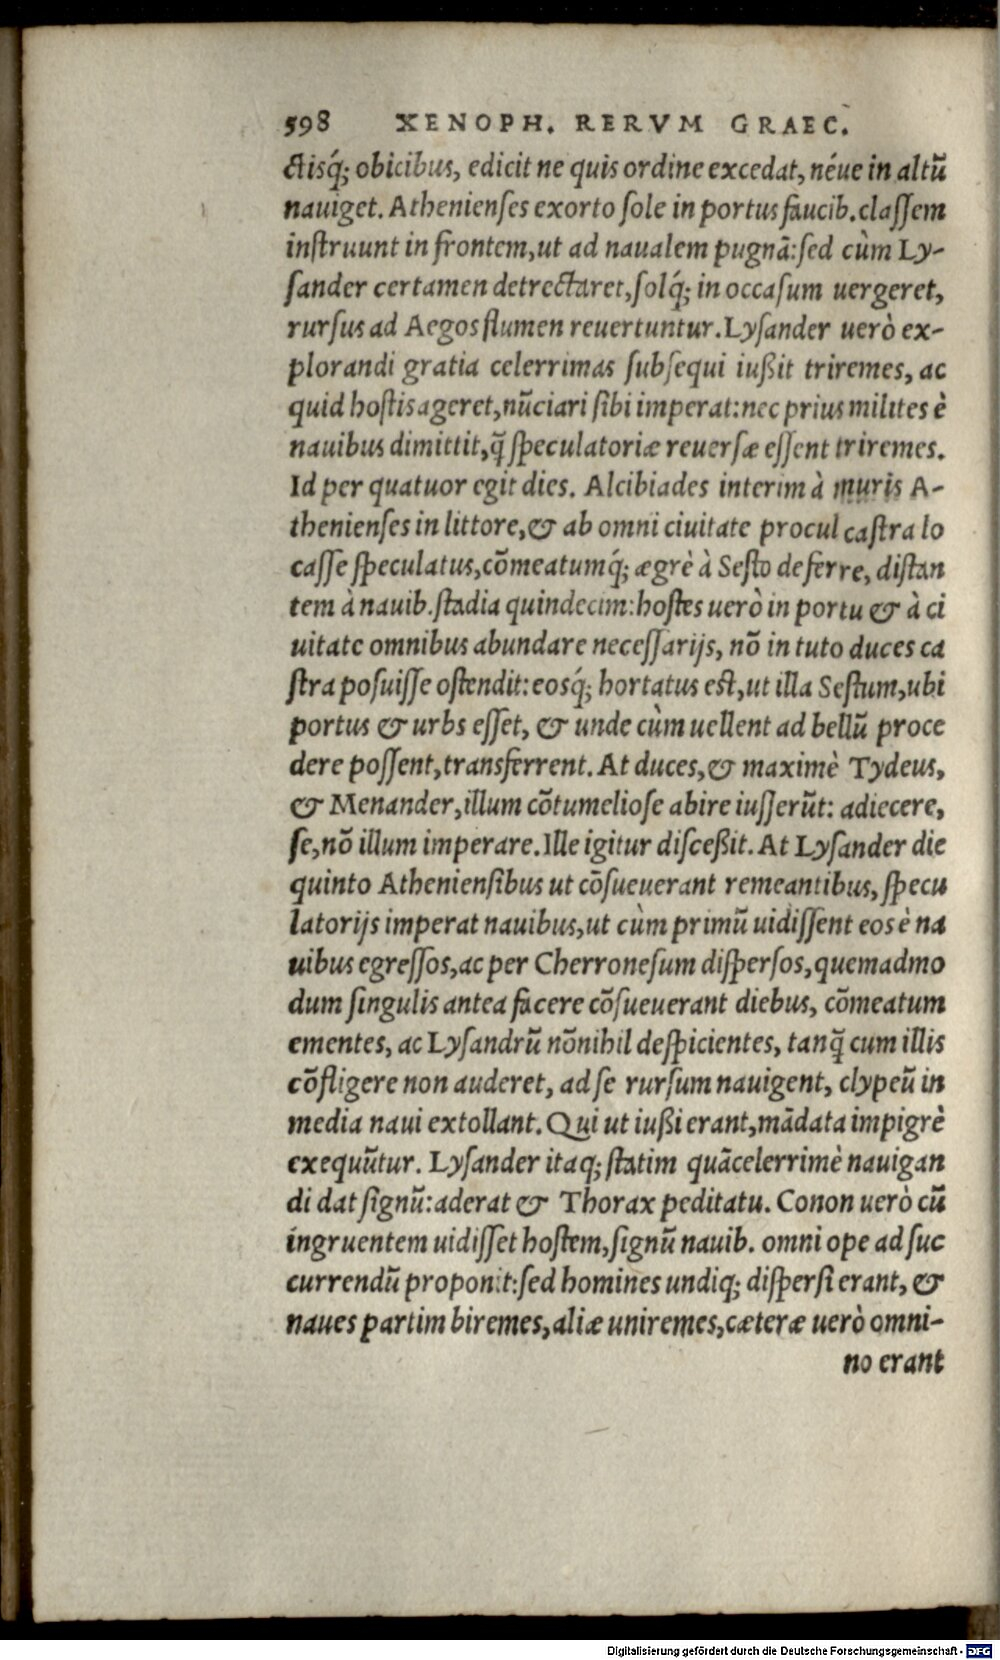 598 XENOPH. RERVM GRAEC.
ctisq́; obicibus, edicit ne quis ordine excedat, néue in altũ
nauiget. Athenienses exorto sole in portus faucib. classem
instruunt in frontem, ut ad naualem pugnã: sed cùm Ly-
sander certamen detrectaret, solq́; in occasum uergeret,
rursus ad Aegos flumen reuertuntur. Lysander uerò ex-
plorandi gratia celerrimas subsequi iußit triremes, ac
quid hostis ageret, nũciari sibi imperat: nec prius milites è
nauibus dimittit, q̃ speculatoriæ reuersæ essent triremes.
Id per quatuor egit dies. Alcibiades interim à muris A-
thenienses in littore, & ab omni ciuitate procul castra lo
casse speculatus, cõmeatumq́; ægrè à Sesto deferre, distan
tem à nauib. stadia quindecim: hostes uerò in portu & à ci
uitate omnibus abundare necessarijs, nõ in tuto duces ca
stra posuisse ostendit: eosq́; hortatus est, ut illa Sestum, ubi
portus & urbs esset, & unde cùm uellent ad bellũ proce
dere possent, transferrent. At duces, & maximè Tydeus,
& Menander, illum cõtumeliose abire iusserũt: adiecere,
se, nõ illum imperare. Ille igitur discessit. At Lysander die
quinto Atheniensibus ut cõsueuerant remeantibus, specu
latorijs imperat nauibus, ut cùm primũ uidissent eos è na
uibus egressos, ac per Cherronesum dispersos, quemadmo
dum singulis antea facere cõsueuerant diebus, cõmeatum
ementes, ac Lysandrũ nõnihil despicientes, tanq̃ cum illis
cõfligere non auderet, ad se rursum nauigent, clypeũ in
media naui extollant. Qui ut iußi erant, mãdata impigrè
exequũtur. Lysander itaq; statim quãcelerrimè nauigan
di dat signũ: aderat & Thorax peditatu. Conon uerò cũ
ingruentem uidisset hostem, signũ nauib. omni ope ad suc
currendũ proponit: sed homines undiq; dispersi erant, &
naues partim biremes, aliæ uniremes, cæteræ uerò omni-
no erant
Digitalisierung gefördert durch die Deutsche Forschungsgemeinschaft - DFG